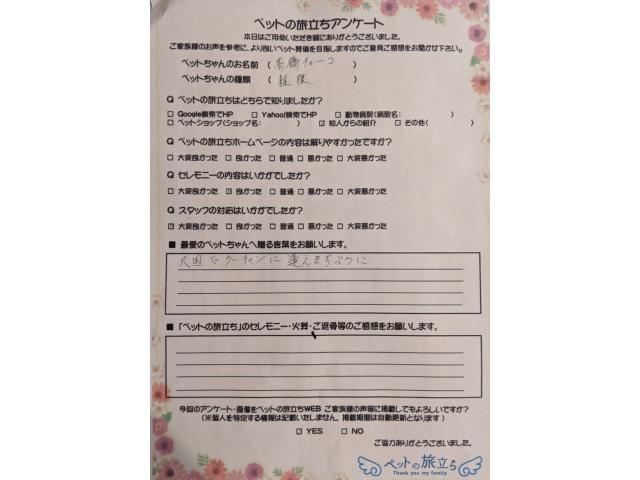 ペットの旅立ちアンケート
本日はご用命いただき誠にありがとうございました。
ご家族様のお声を参考に、より良いペット葬儀を目指しますのでご意見ご感想をお聞かせ下さい。
ペットちゃんのお名前 ( 高橋チャーコ )
ペットちゃんの種類 ( 雑種 )
Q ペットの旅立ちはどちらで知りましたか?
□ Google検索でHP □ Yahoo!検索でHP □ 動物病院(病院名: )
□ ペットショップ(ショップ名: ) ☑ 知人からの紹介 □ その他( )
Q ペットの旅立ちホームページの内容は解りやすかったですか?
□ 大変良かった □ 良かった □ 普通 □ 悪かった □ 大変悪かった
Q セレモニーの内容はいかがでしたか?
□ 大変良かった ☑ 良かった □ 普通 □ 悪かった □ 大変悪かった
Q スタッフの対応はいかがでしたか?
☑ 大変良かった □ 良かった □ 普通 □ 悪かった □ 大変悪かった
■ 最愛のペットちゃんへ贈る言葉をお願いします。
天国でクーチャンに逢えますように
■「ペットの旅立ち」のセレモニー・火葬・ご返骨等のご感想をお願いします。
今回のアンケート・画像をペットの旅立ちWEB ご家族様の声等に掲載してもよろしいですか?
(※個人を特定する情報は記載いたしません。掲載期間は自動更新となります)
☑ YES □ NO
ご協力ありがとうございました。
ペットの旅立ち
Thank you my family